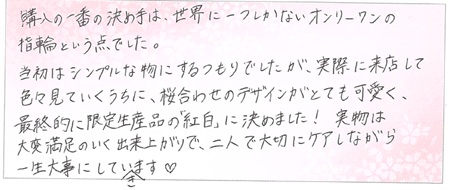 購入の一番の決め手は、世界に一つしかないオンリーワンの
指輪という点でした。
当初はシンプルな物にするつもりでしたが、実際に来店して
色々見ていくうちに、桜合わせのデザインがとても可愛く、
最終的に限定生産品の「紅白」に決めました！ 実物は
大変満足のいく出来上がりで、二人で大切にケアしながら
一生大事にしていきます♡